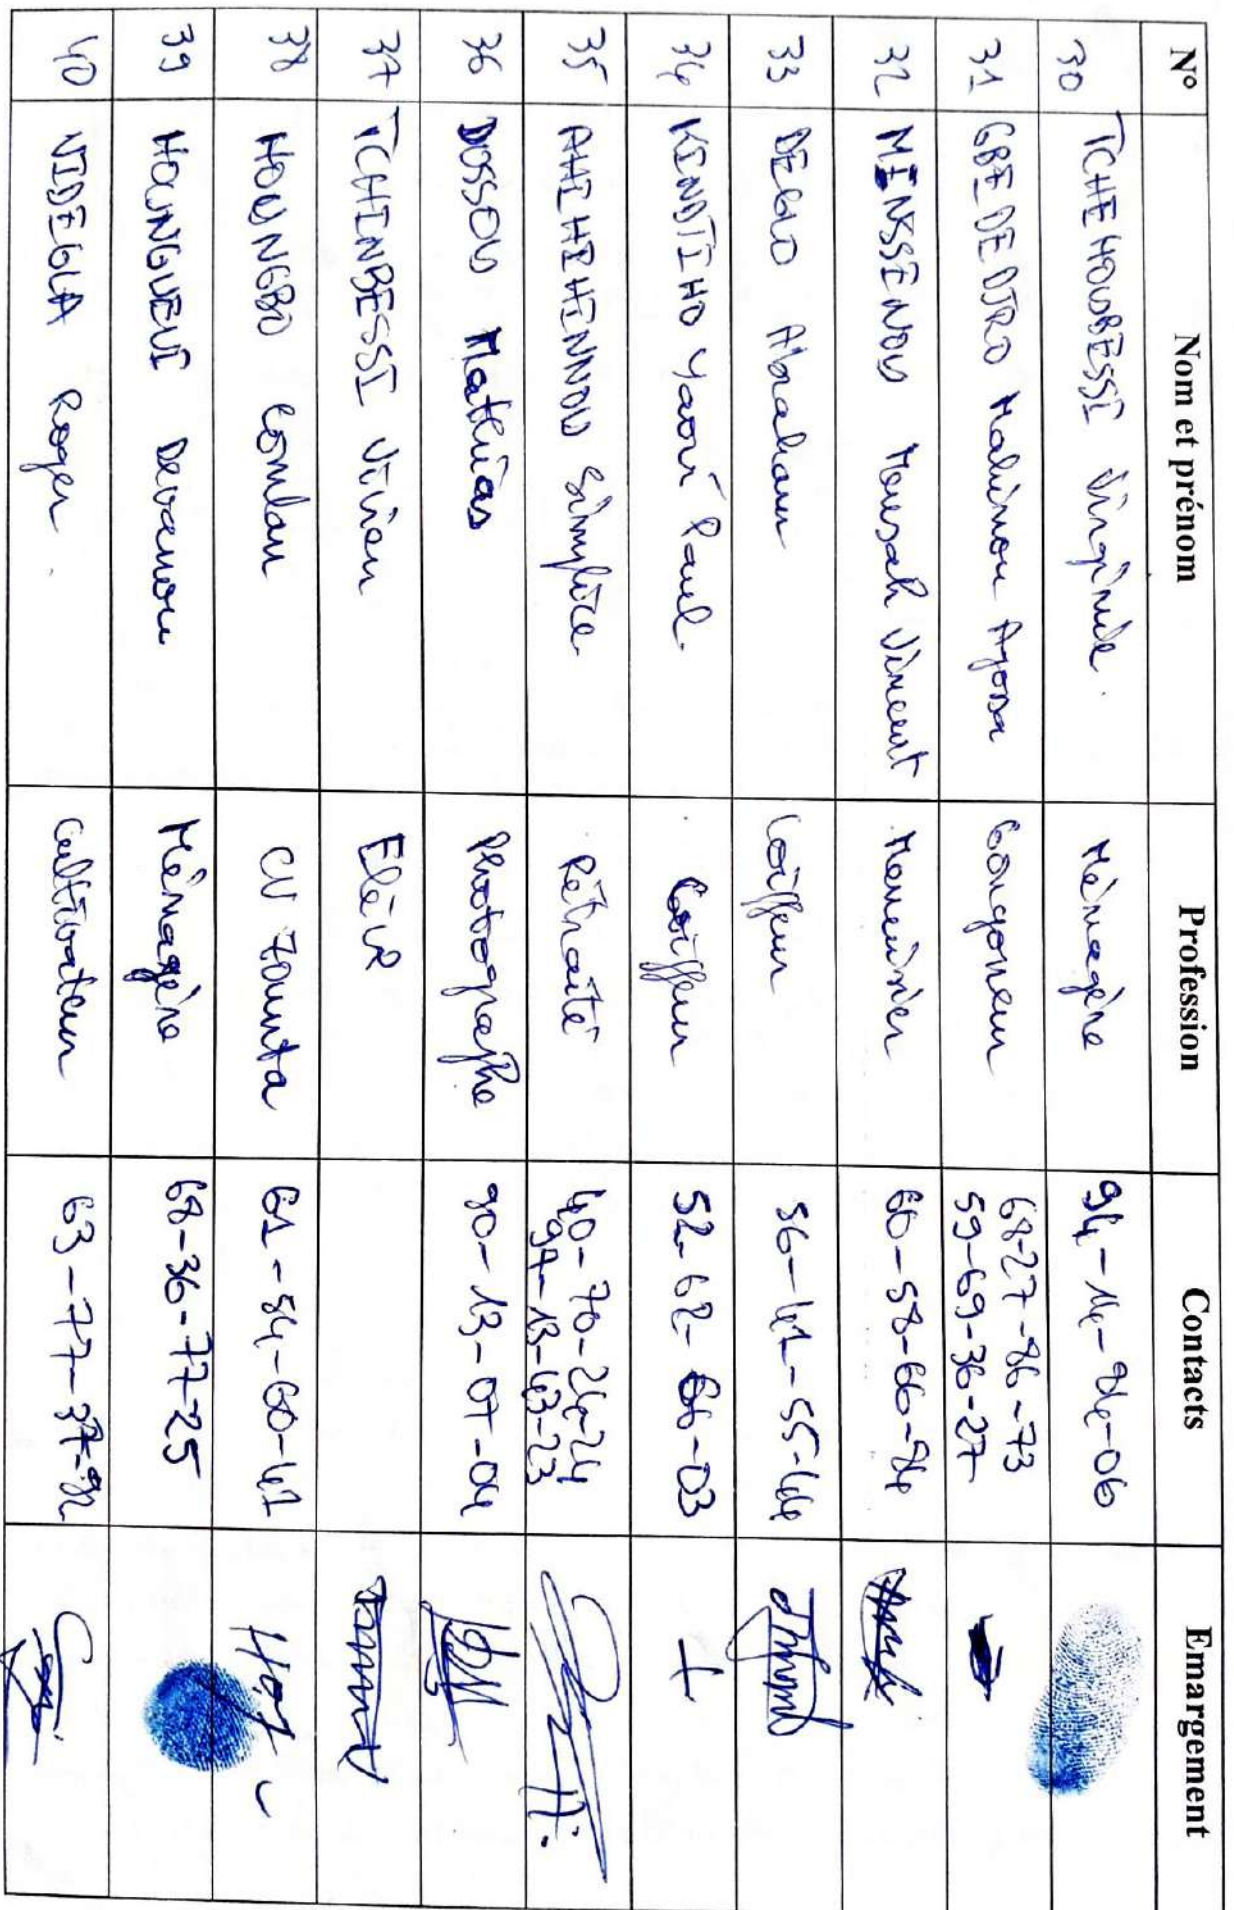 N° Nom et prénom Profession Contacts Emargement
30 TCHEHOUBESSI Virginie. Ménagère 94-14-94-06
31 GBEDEDJRO Mahinou Ajossa 68-27-86-73
59-69-36-27
32 MINSSINOU Vincent Menuisier 60-58-66-94
33 Abraham Coiffeur 56-41-55-44
34 KINDJIHO Yaovi Paul. Coiffeur 52-62-66-03
35 AHIHEHINNOU Retraité 40-70-24-24
97-13-43-23
36 DOSSOU Mathias Photographe 90-13-07-04
37 TCHINBESSI Vivien Elève
38 HOUNGBO Comlan CV Zounta 61-54-60-41
39 HOUNGUEVI Devanou Ménagère 68-36-77-25
40 VIDEGLA Roger Cultivateur 63-77-37-92